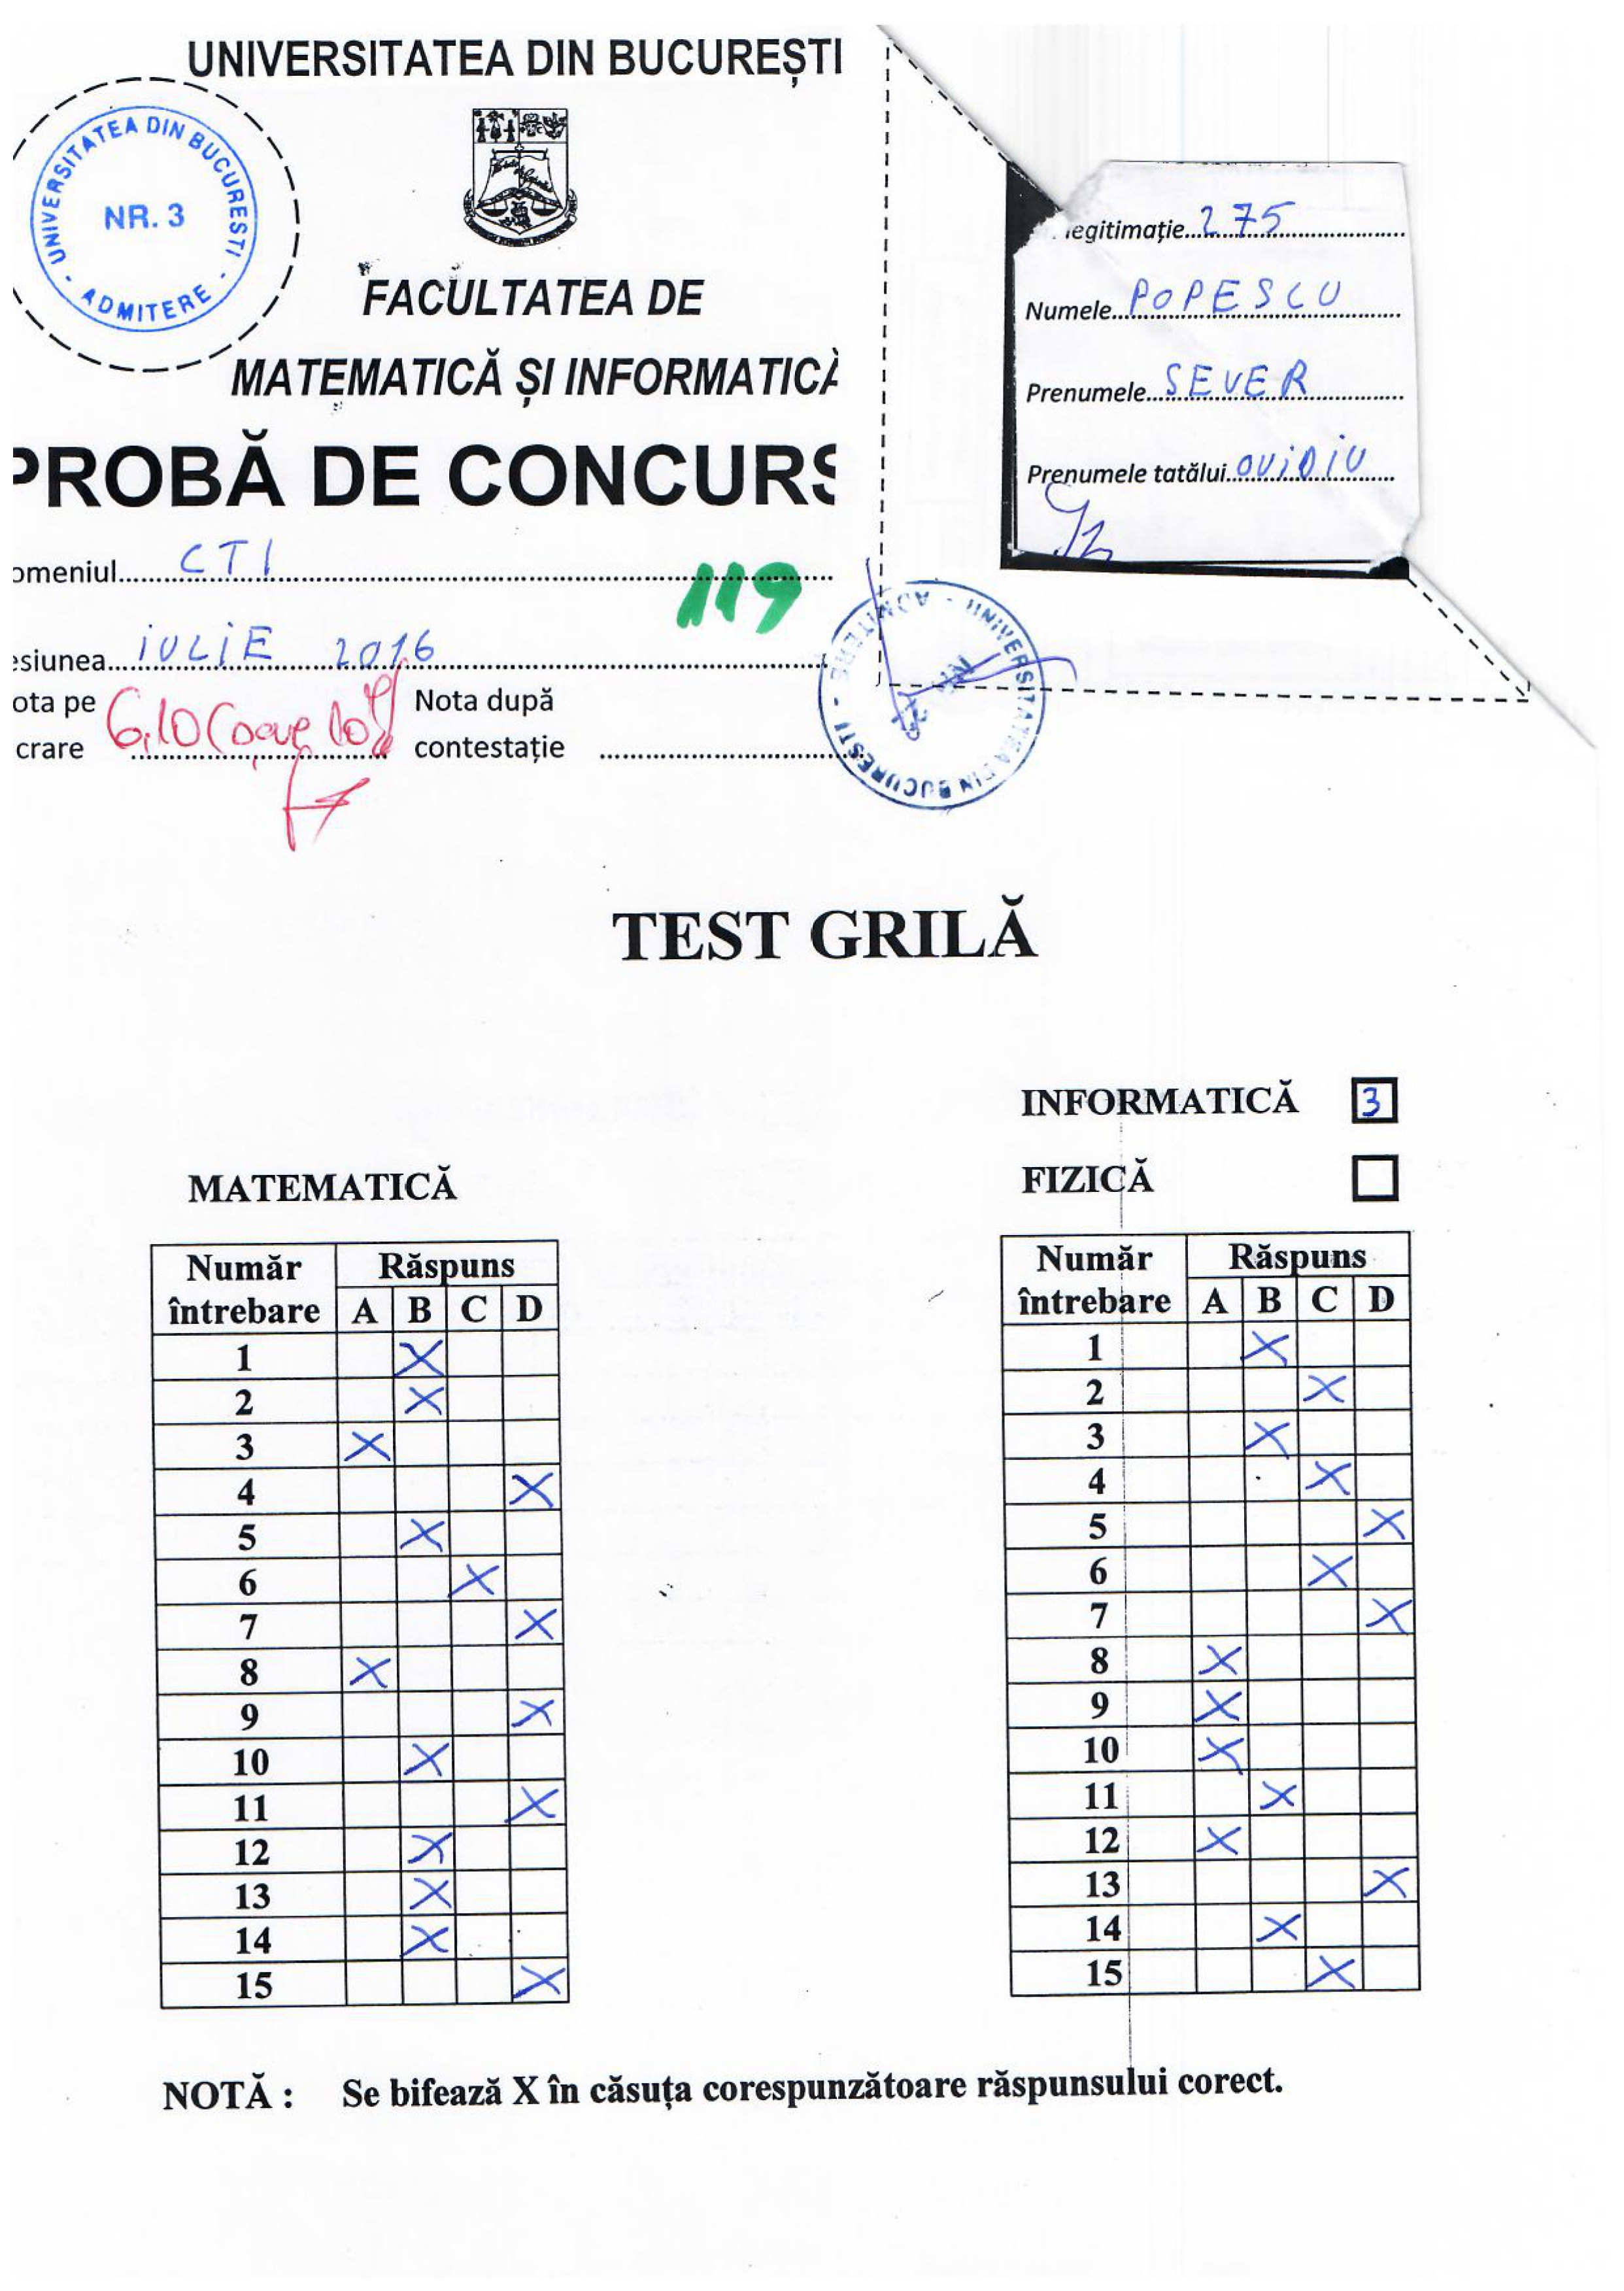 UNIVERSITATEA DIN BUCUREȘTI
UNIVERSITATEA DIN BUCURESTI - ADMITERE -
NR. 3
FACULTATEA DE
MATEMATICĂ ȘI INFORMATICĂ
PROBĂ DE CONCURS
omeniul CTI
119
esiunea IULIE 2016
ota pe
crare 6,10
Nota după
contestație
legitimație 275
Numele POPESCU
Prenumele SEVER
Prenumele tatălui OVIDIU
UNIVERSITATEA DIN BUCURESTI - ADMITERE -
TEST GRILĂ
INFORMATICĂ 3
FIZICĂ
MATEMATICĂ
Număr Răspuns
întrebare A B C D
1 X
2 X
3 X
4 X
5 X
6 X
7 X
8 X
9 X
10 X
11 X
12 X
13 X
14 X
15 X
Număr Răspuns
întrebare A B C D
1 X
2 X
3 X
4 X
5 X
6 X
7 X
8 X
9 X
10 X
11 X
12 X
13 X
14 X
15 X
NOTĂ : Se bifează X în căsuța corespunzătoare răspunsului corect.